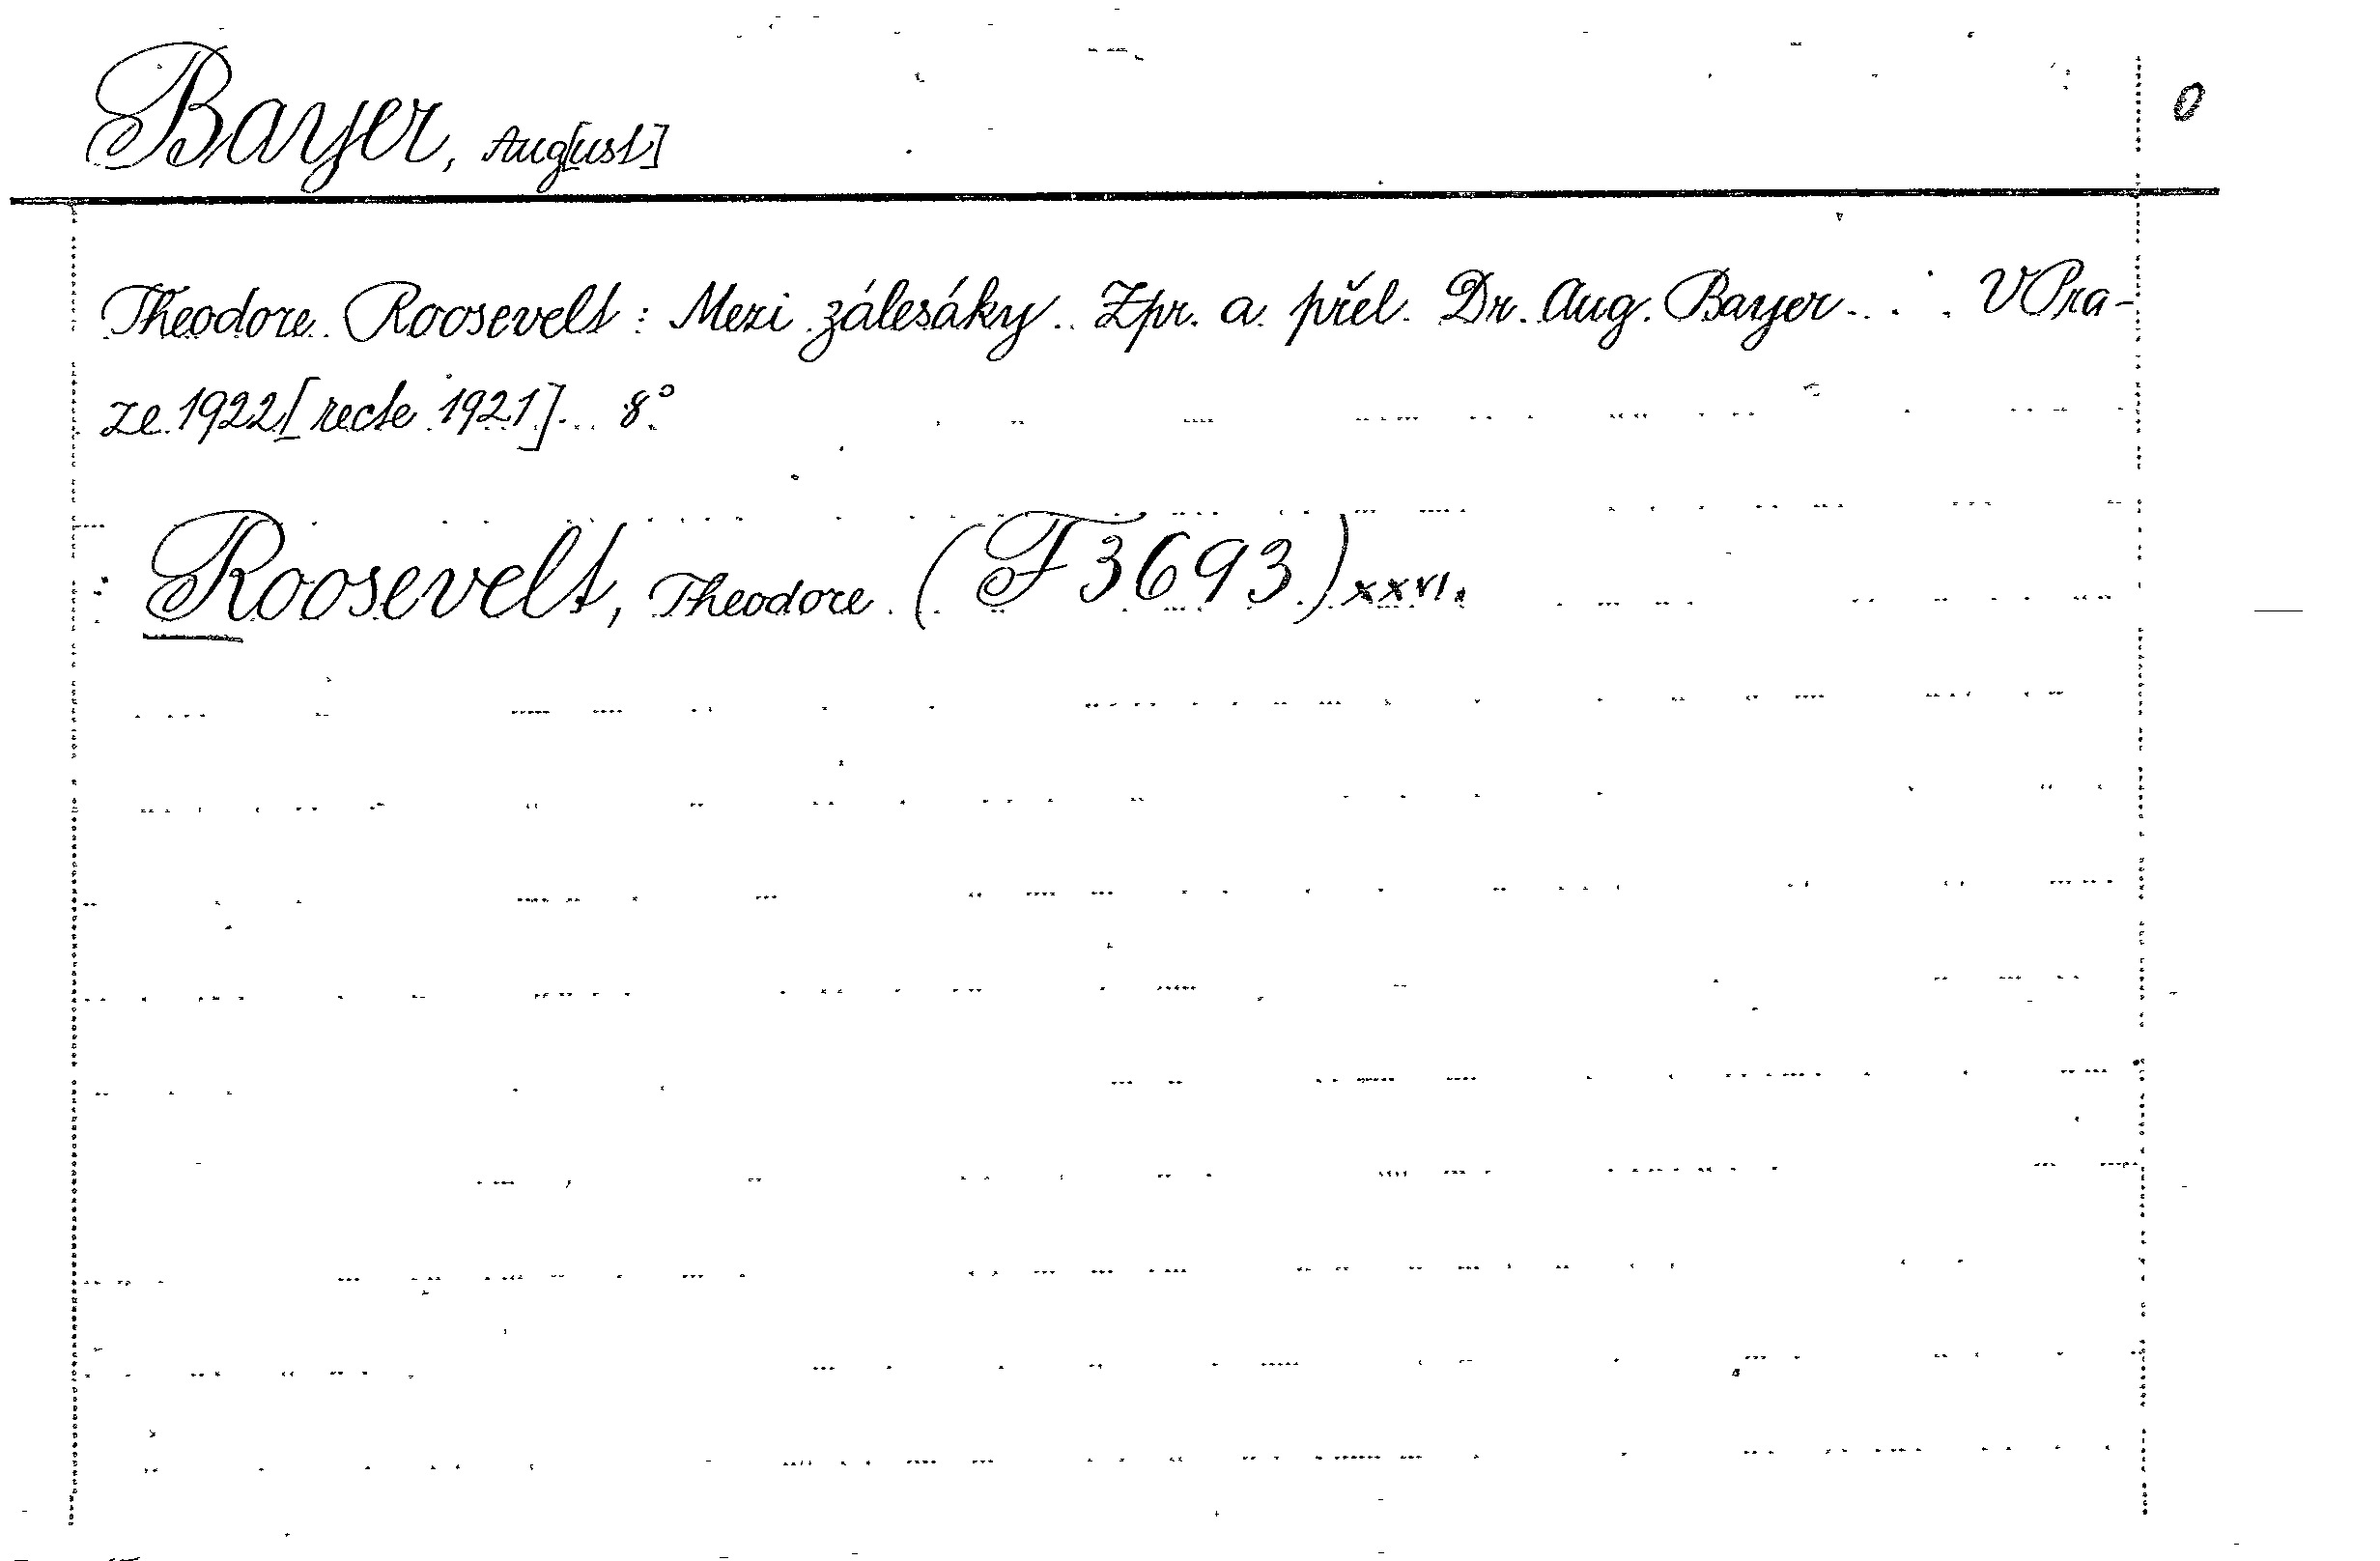 Bayer, Aug[ust]
0
Theodore Roosevelt: Mezi zálesáky. Zpr. a přel. Dr. Aug. Bayer... V Pra-
ze 1922 [recte 1921]. 8°
Roosevelt, Theodore (F 3693) XXVI.